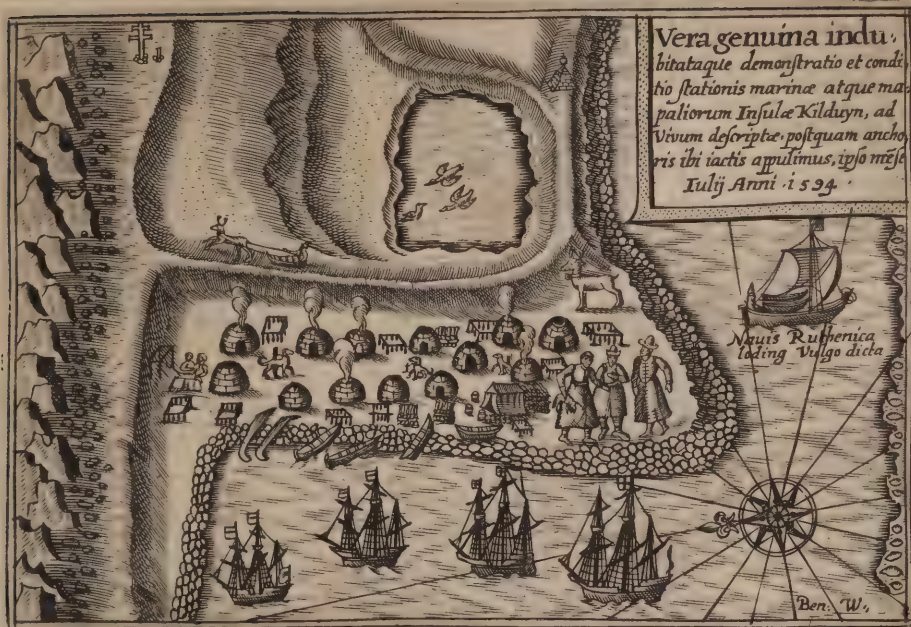 Vera genuina indu,
bitataque demonſtratio et condi
tio ſtationis marinæ atque ma,
paliorum Inſulæ Kilduyn, ad
Vivum deſcriptæ, poſtquam ancho
ris ibi iactis appulimus, ipſo mẽſe
Iulij Anni · 1594 ·
Navis Ruthenica
loding Vulgo dicta
Ben: W.